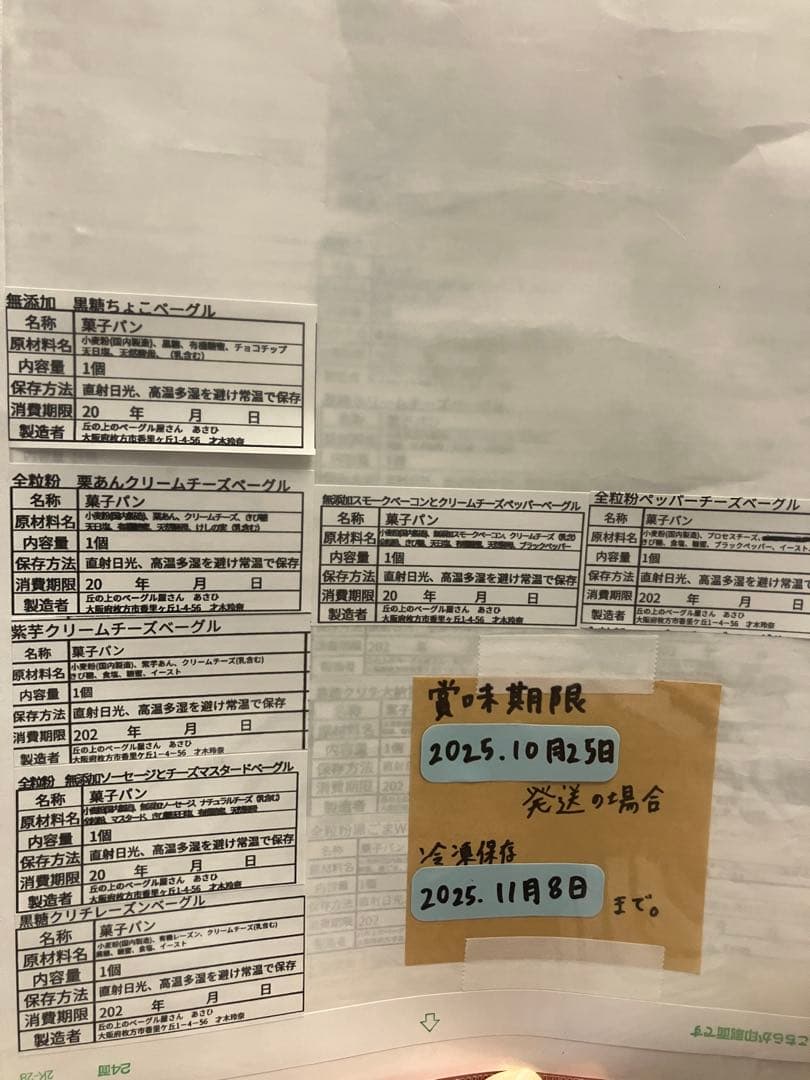 無添加 黒糖ちょこベーグル
名称 菓子パン
原材料名 小麦粉(国内製造)、黒糖、有機糖蜜、チョコチップ
天日塩、天然酵母、(乳含む)
内容量 1個
保存方法 直射日光、高温多湿を避け常温で保存
消費期限 20 年 月 日
製造者 丘の上のベーグル屋さん あさひ
大阪府枚方市香里ケ丘1-4-56 才木玲奈
全粒粉 栗あんクリームチーズベーグル
名称 菓子パン
原材料名 小麦粉(国内製造)、栗あん、クリームチーズ、きび糖
天日塩、有機糖蜜、天然酵母、けしの実(乳含む)
内容量 1個
保存方法 直射日光、高温多湿を避け常温で保存
消費期限 20 年 月 日
製造者 丘の上のベーグル屋さん あさひ
大阪府枚方市香里ケ丘1-4-56 才木玲奈
紫芋クリームチーズベーグル
名称 菓子パン
原材料名 小麦粉(国内製造)、紫芋あん、クリームチーズ(乳含む)
きび糖、食塩、糖蜜、イースト
内容量 1個
保存方法 直射日光、高温多湿を避け常温で保存
消費期限 202 年 月 日
製造者 丘の上のベーグル屋さん あさひ
大阪府枚方市香里ケ丘1-4-56 才木玲奈
全粒粉 無添加ソーセージとチーズマスタードベーグル
名称 菓子パン
原材料名 無添加ソーセージ、ナチュラルチーズ(乳含む)
マスタード、きび糖
内容量 1個
保存方法 直射日光、高温多湿を避け常温で保存
消費期限 20 年 月 日
製造者 丘の上のベーグル屋さん あさひ
大阪府枚方市香里ケ丘1-4-56 才木玲奈
黒糖クリチレーズンベーグル
名称 菓子パン
原材料名 小麦粉(国内製造)、有機レーズン、クリームチーズ(乳含む)
黒糖、糖蜜、食塩、イースト
内容量 1個
保存方法 直射日光、高温多湿を避け常温で保存
消費期限 202 年 月 日
製造者 丘の上のベーグル屋さん あさひ
大阪府枚方市香里ケ丘1-4-56 才木玲奈
無添加スモークベーコンとクリームチーズペッパーベーグル
名称 菓子パン
原材料名 小麦粉(国内製造)、無添加スモークベーコン、クリームチーズ(乳含む)
きび糖、天日塩、有機糖蜜、天然酵母、ブラックペッパー
内容量 1個
保存方法 直射日光、高温多湿を避け常温で保存
消費期限 20 年 月 日
製造者 丘の上のベーグル屋さん あさひ
大阪府枚方市香里ケ丘1-4-56 才木玲奈
全粒粉ペッパーチーズベーグル
名称 菓子パン
原材料名 小麦粉(国内製造)、プロセスチーズ、
きび糖、食塩、糖蜜、ブラックペッパー、イースト
内容量 1個
保存方法 直射日光、高温多湿を避け常温で保存
消費期限 202 年 月 日
製造者 丘の上のベーグル屋さん あさひ
大阪府枚方市香里ケ丘1-4-56 才木玲奈
賞味期限
2025.10月25日
発送の場合
冷凍保存
2025.11月8日
まで。
こちらが印刷面です
24面
2K-28